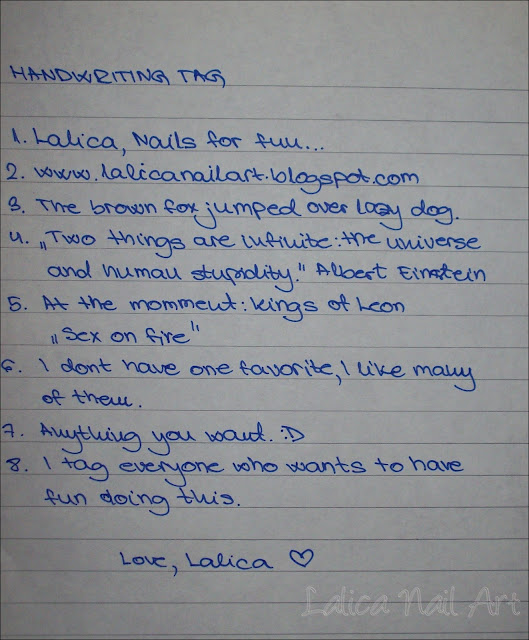 HANDWRITING TAG
1. Lalica, Nails for fun...
2. www.lalicanailart.blogspot.com
3. The brown fox jumped over lazy dog.
4. „Two things are infinite: the universe
and human stupidity." Albert Einstein
5. At the momment: Kings of Leon
„Sex on fire"
6. I dont have one favorite, I like many
of them.
7. Anything you want. :D
8. I tag everyone who wants to have
fun doing this.
Love, Lalica ♡
Lalica Nail Art